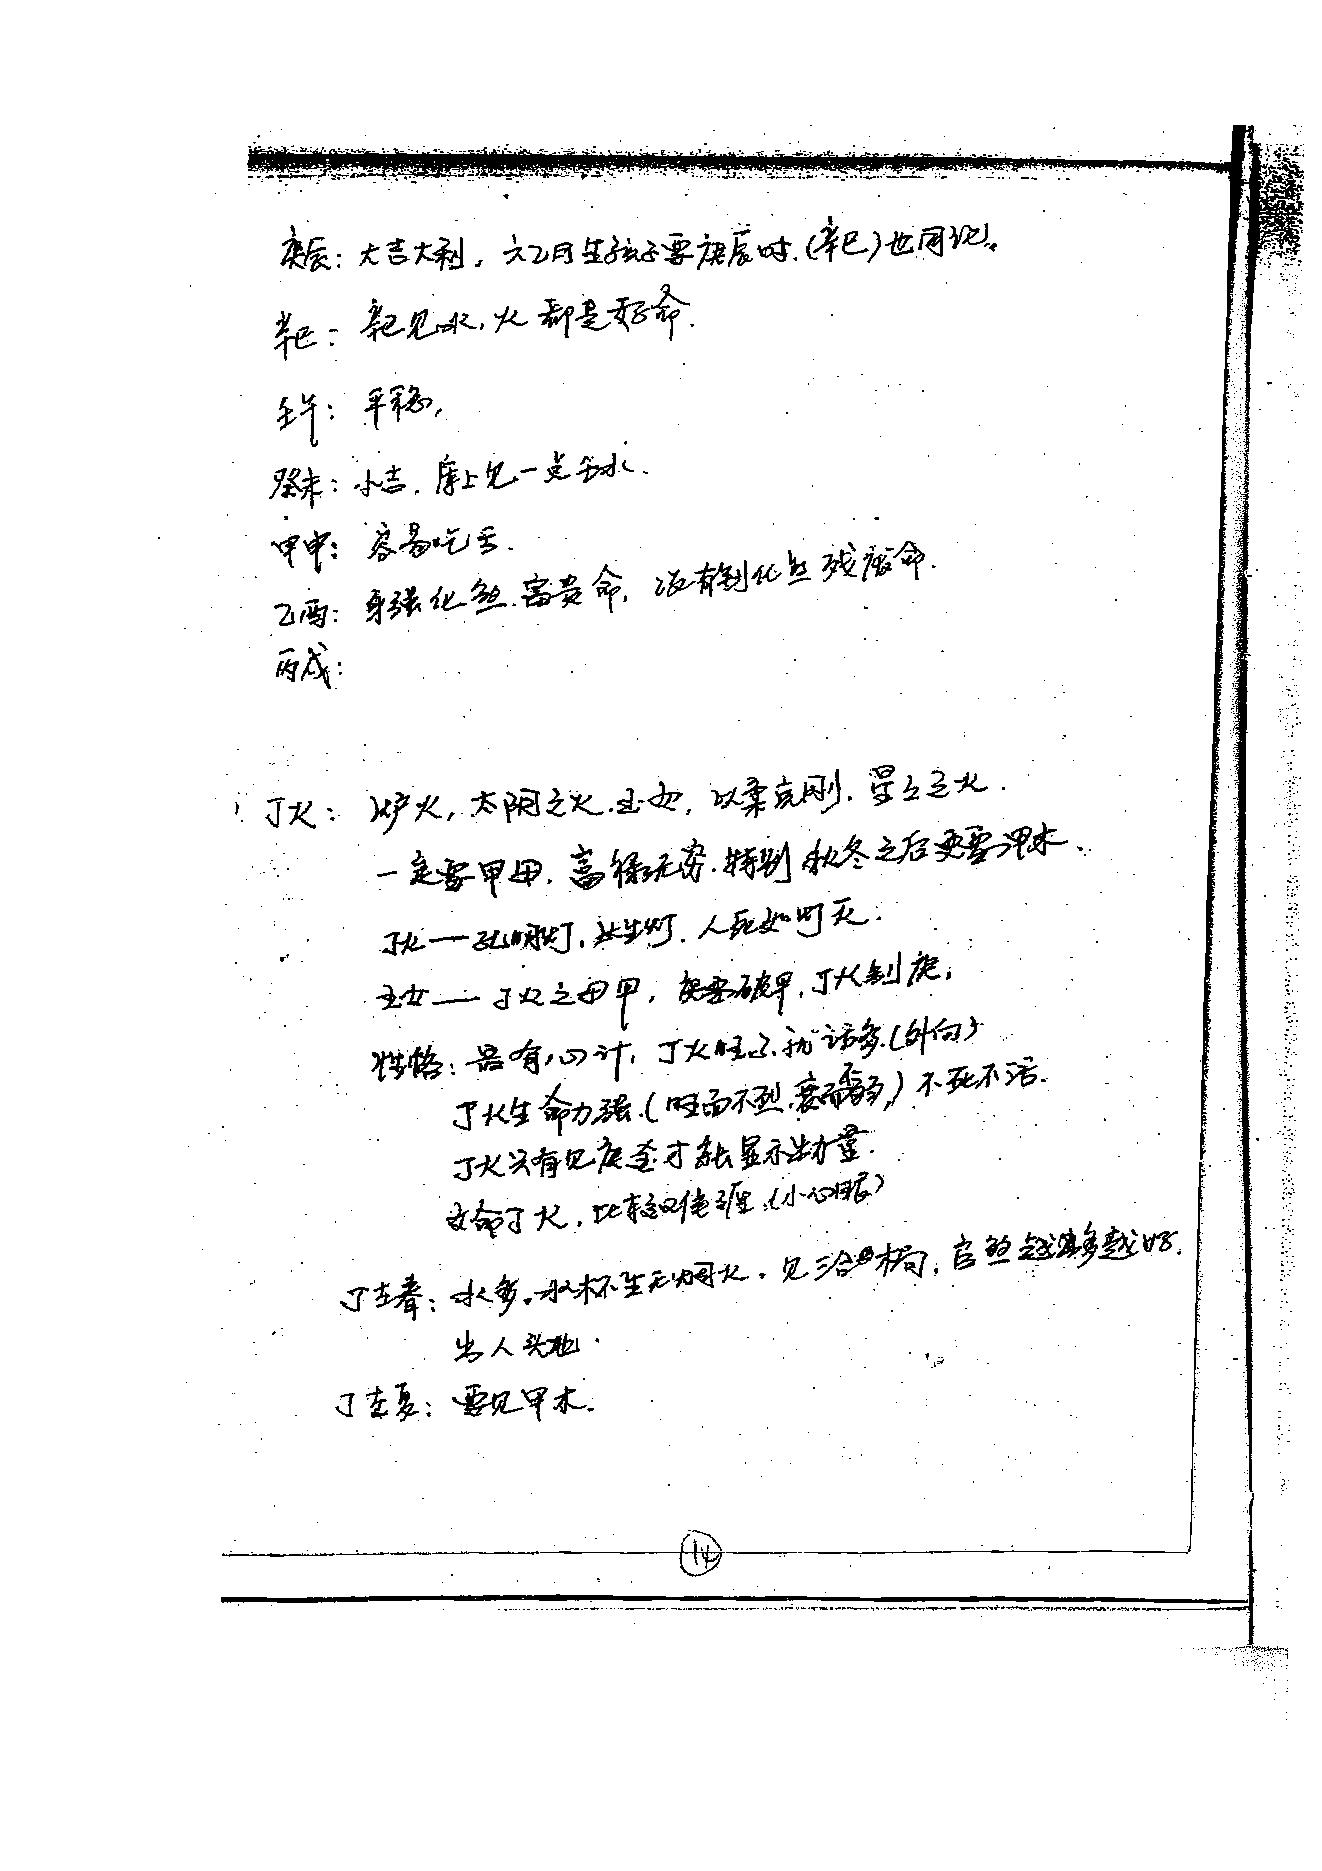 庚辰：大吉大利，六乙月生孩子要庚辰时.(辛巳)也同论。
辛巳：辛巳见水，火都是好命.
壬午：平稳，
癸未：小吉，库上见一点壬水.
甲申：容易吃舌.
乙酉：身强化煞.富贵命，没有制化是残废命.
丙戌：
丁火：炉火，太阴之火.玉女，以柔克刚，星星之火.
一定要甲母，富禄无穷.特别秋冬之后更要甲木.
丁火——孔明灯，长生灯，人死如灯灭.
玉女——丁火之母甲，庚要破甲，丁火制庚，
性格：具有心计，丁火旺了.就话多.(外向)
丁火生命力强.(旺而不烈.衰而不弱，)不死不活.
丁火只有见庚金才能显示出力量.
女命丁火，比较(小心眼)
丁在春：水多，水木不生无焰火，见三合木局，官煞越多越好.
出人头地.
丁在夏：要见甲木.
14